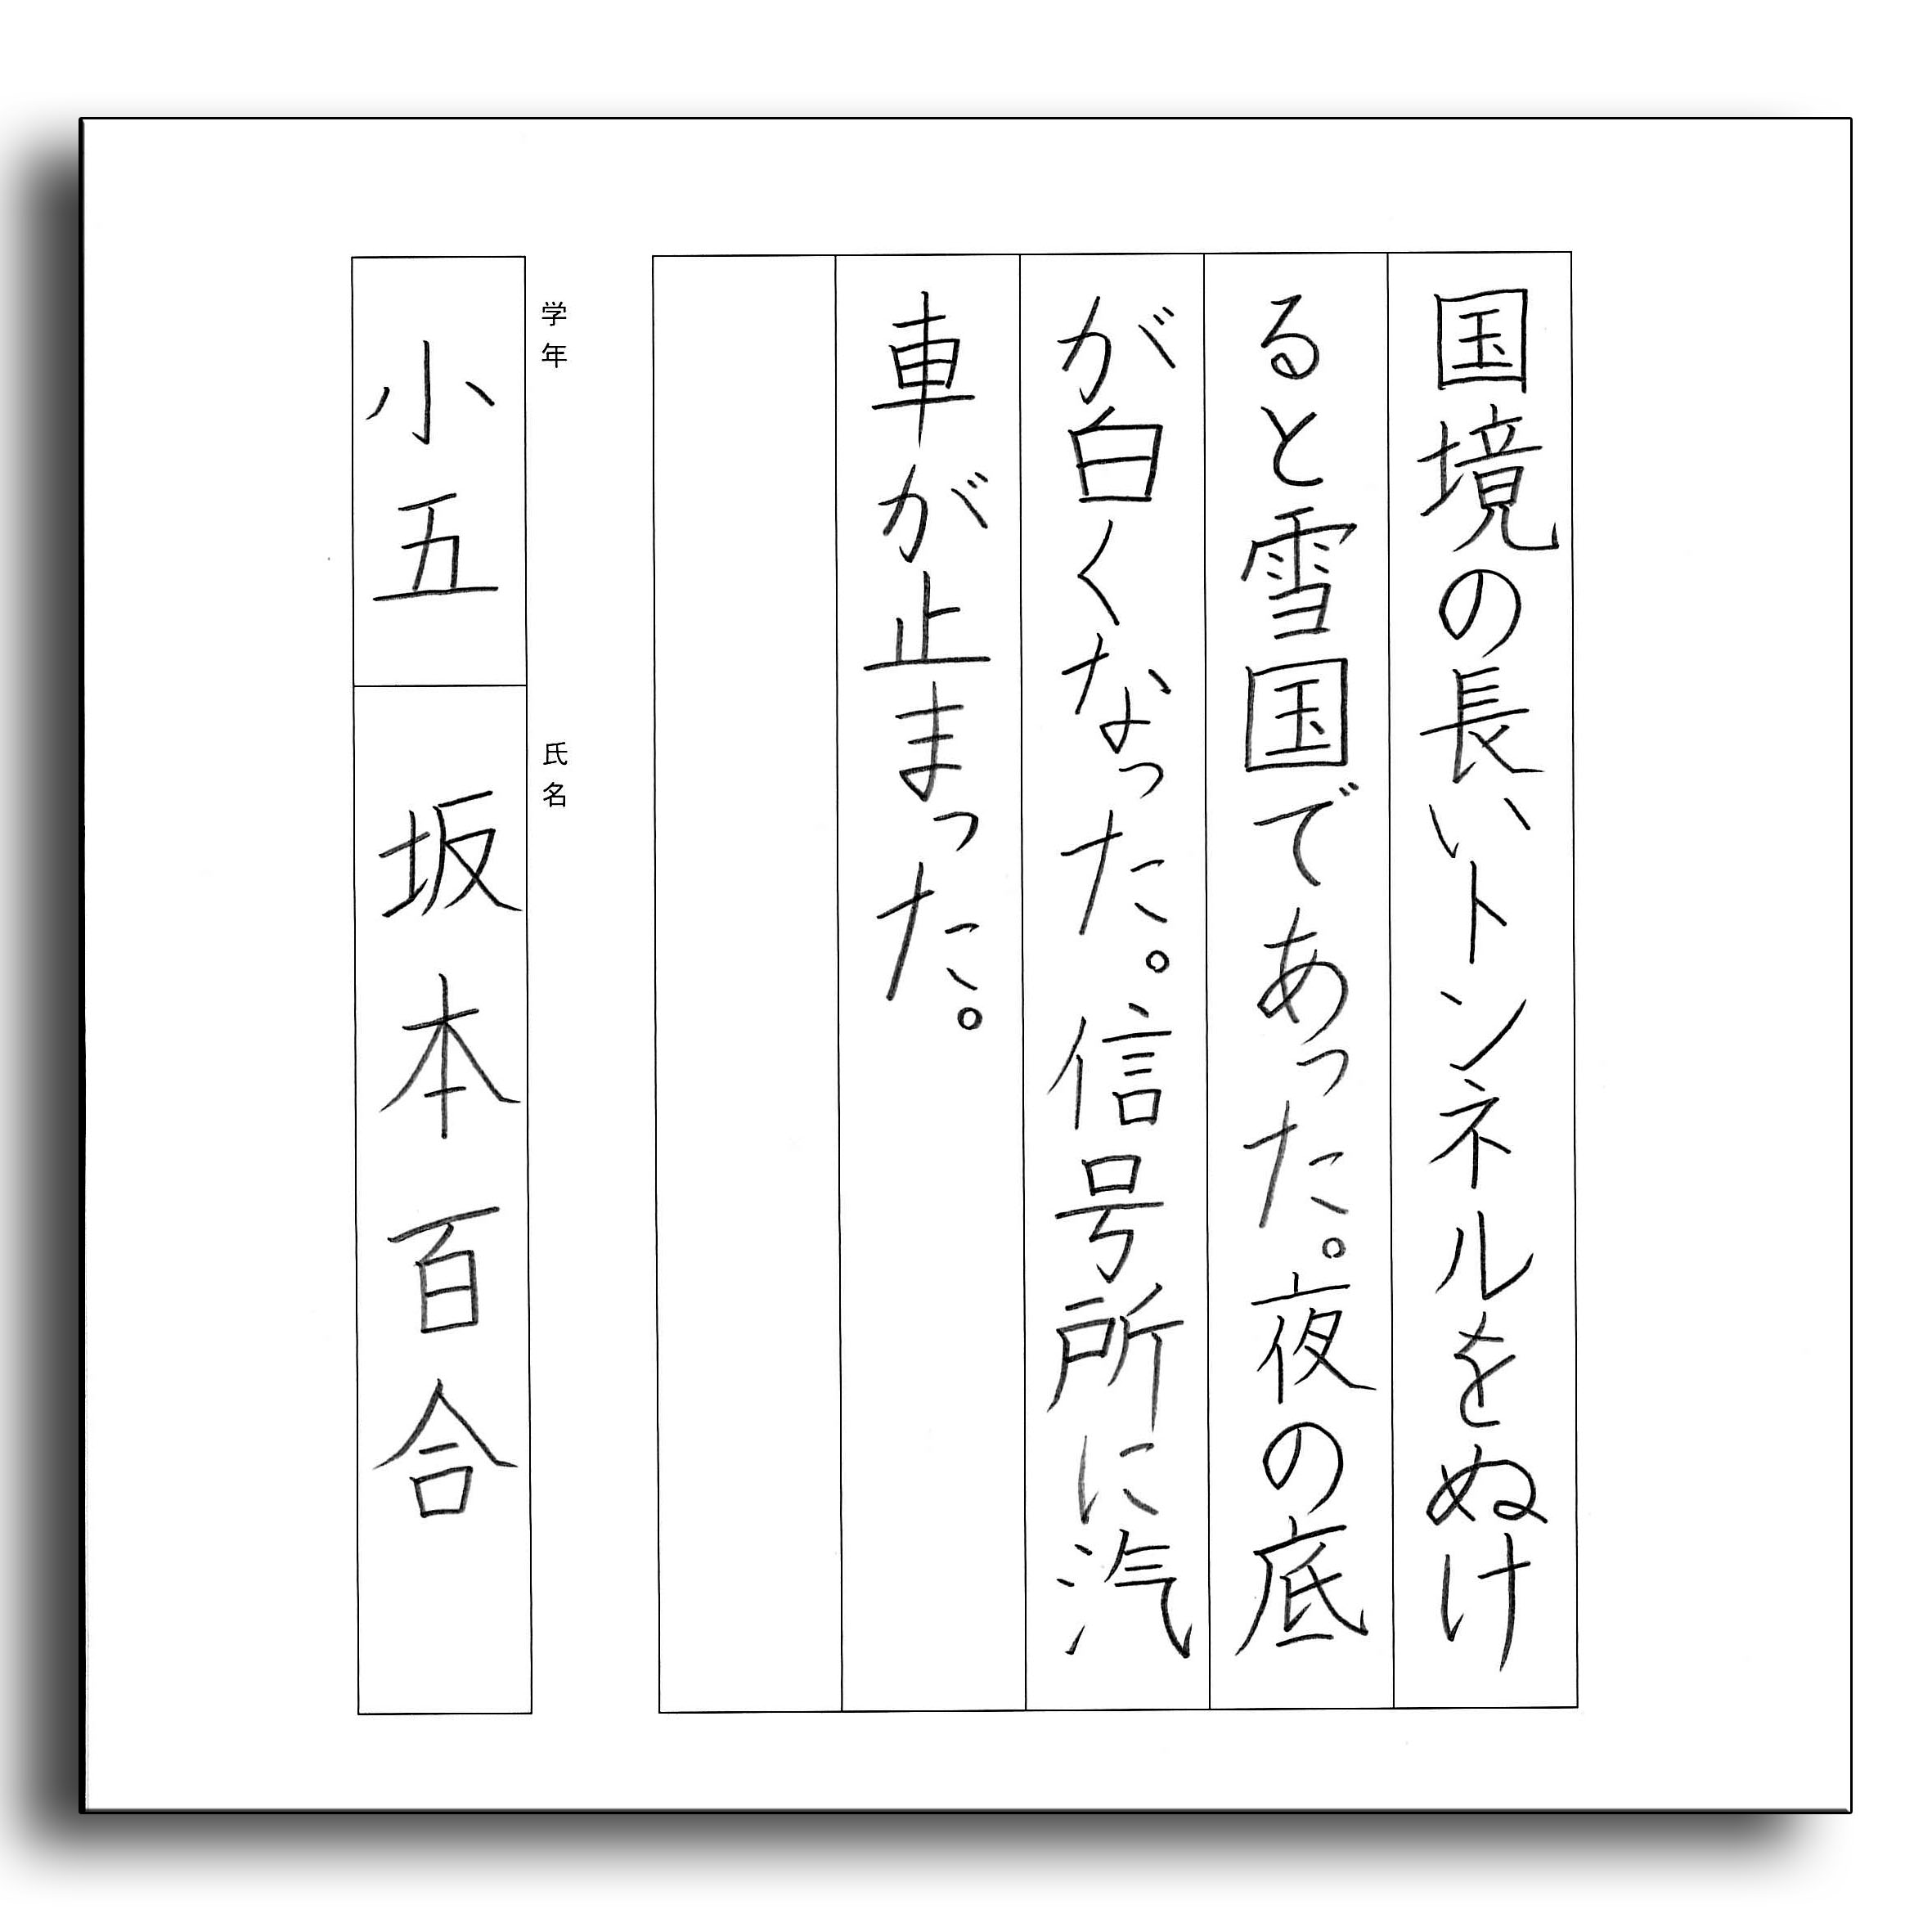 国境の長いトンネルをぬけ
ると雪国であった。夜の底
が白くなった。信号所に汽
車が止まった。
学年
小五
氏名
坂本百合